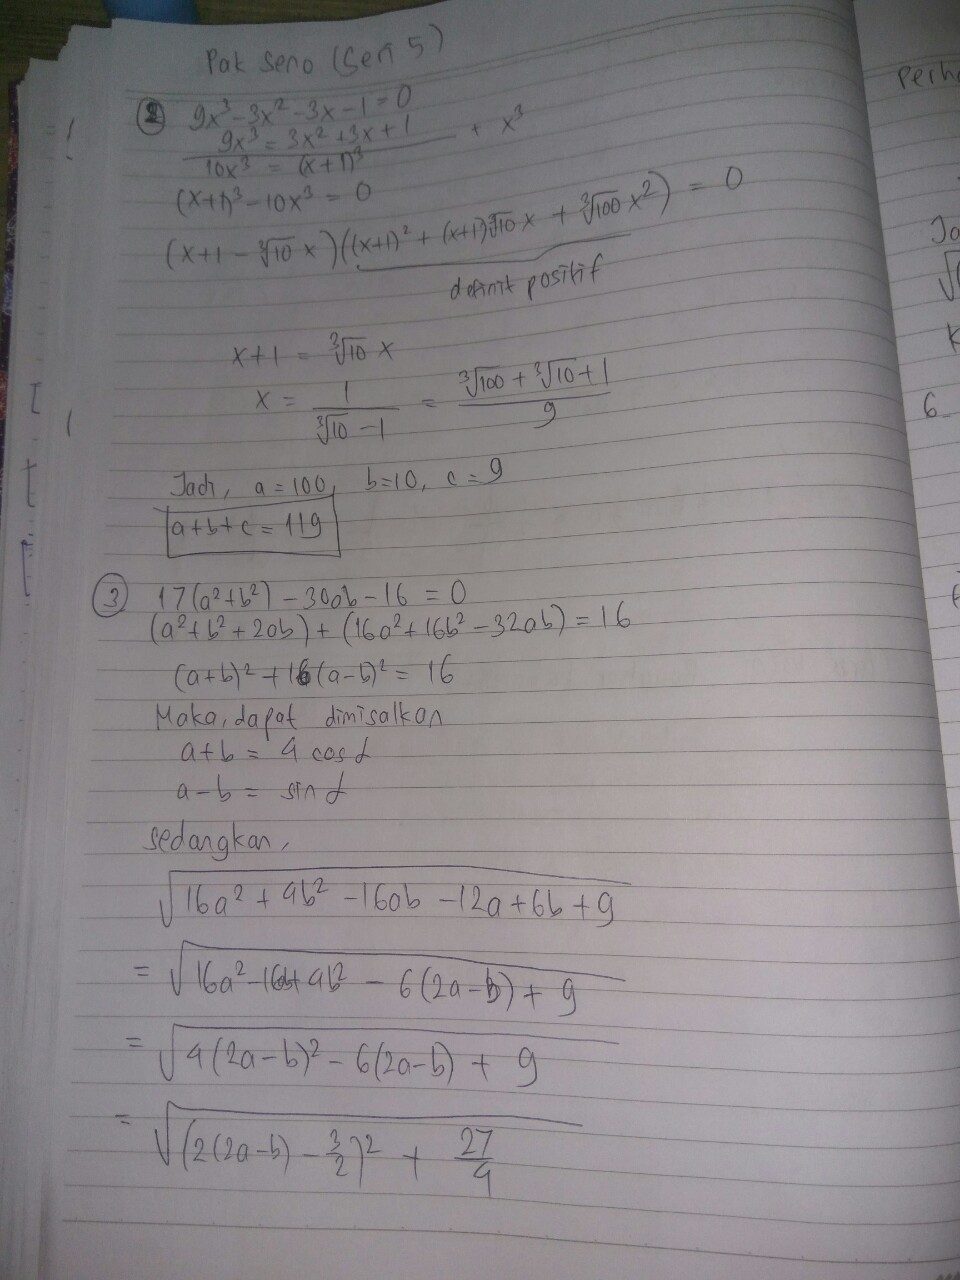 Pak Seno (Seri 5)
② 9x³ - 3x² - 3x - 1 = 0
9x³ = 3x² + 3x + 1
+ x³
10x³ = (x+1)³
(x+1)³ - 10x³ = 0
(x+1 - ∛10 x)((x+1)² + (x+1)∛10 x + ∛100 x²) = 0
definit positif
x+1 = ∛10 x
x = 1/(∛10 - 1) = (∛100 + ∛10 + 1)/9
Jadi, a = 100, b = 10, c = 9
a+b+c = 119
③ 17(a²+b²) - 30ab - 16 = 0
(a²+b²+2ab) + (16a²+16b²-32ab) = 16
(a+b)² + 16(a-b)² = 16
Maka, dapat dimisalkan
a+b = 4 cos α
a-b = sin α
sedangkan,
√(16a² + 4b² - 16ab - 12a + 6b + 9)
= √(16a² - 16ab + 4b² - 6(2a-b) + 9)
= √(4(2a-b)² - 6(2a-b) + 9)
= √((2(2a-b) - 3/2)² + 27/4)
Perha
Ja
√(
K
6